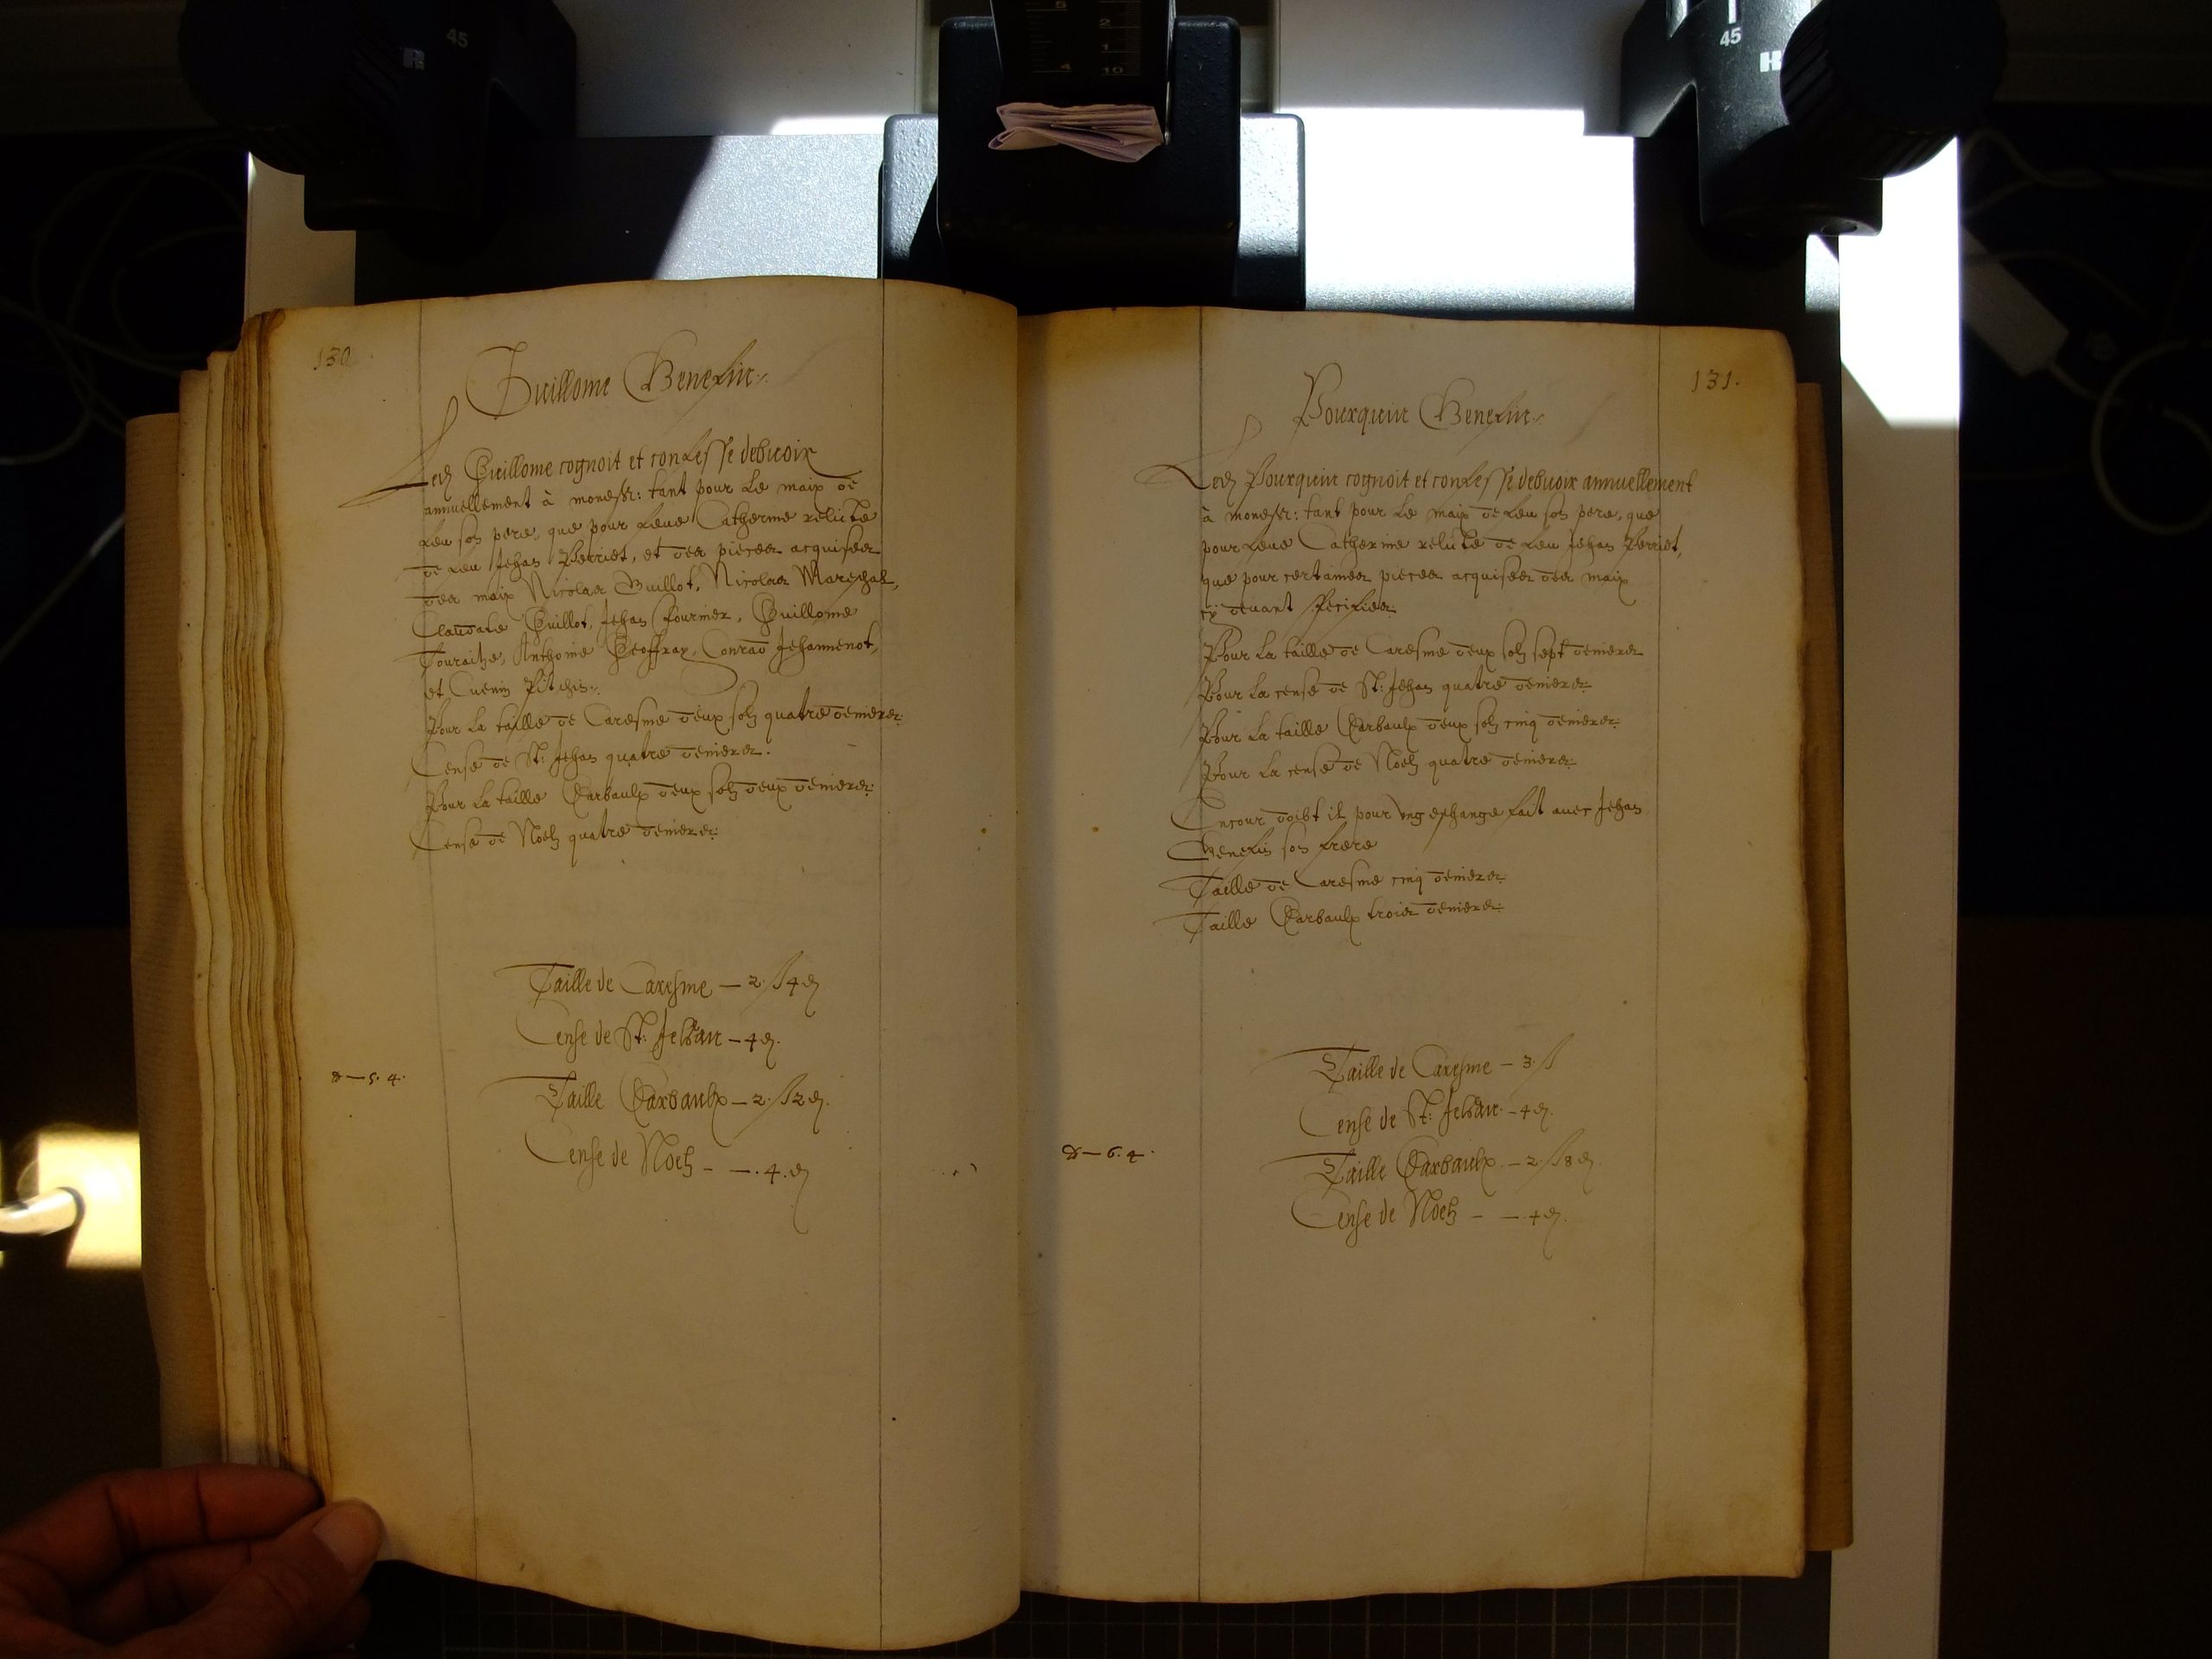 130
Guillome Henefin
Led Guillome cognoit et confesse debuoir
annuellement à mondsr: tant pour le maix de
feu son pere, que pour feue Catherine relicte
de feu Jehan Perriet, et des pieces acquises
des maix Nicolas Guillot, Nicolas Mareschal,
Claudate Guillot, Jehan Fournier, Guillome
Anthoine Geoffray, Conrad Jehannenot,
et Cuenin
Pour la taille de Caresme deux solz quatre deniers
Cense de St: Jehan quatre deniers.
Pour la taille Charbaulx deux solz deux deniers
Cense de Noelz quatre deniers
Taille de Caresme — 2 ß 4 d
Cense de St: Jehan — 4 d.
— 5. 4.
Taille Charbaulx — 2 ß 2 d.
Cense de Noelz - — . 4. d
131.
Pourquin Henefin
Led Pourquin cognoit et confesse debuoir annuellement
à mondsr: tant pour le maix de feu son pere, que
pour feue Catherine relicte de feu Jehan Perriet,
que pour certaines pieces acquises des maix
cy deuant specifies
Pour la taille de Caresme deux solz sept deniers
Pour la cense de St: Jehan quatre deniers
Pour la taille Charbaulx deux solz cinq deniers
Pour la cense de Noelz quatre deniers
Encour doibt il pour vng eschange fait auec Jehan
Henefin son frere
Taille de Caresme cinq deniers
Taille Charbaulx trois deniers
Taille de Caresme — 3 ß
Cense de St: Jehan — 4 d.
— 6. 4.
Taille Charbaulx — 2 ß 8 d.
Cense de Noelz - — 4 d.